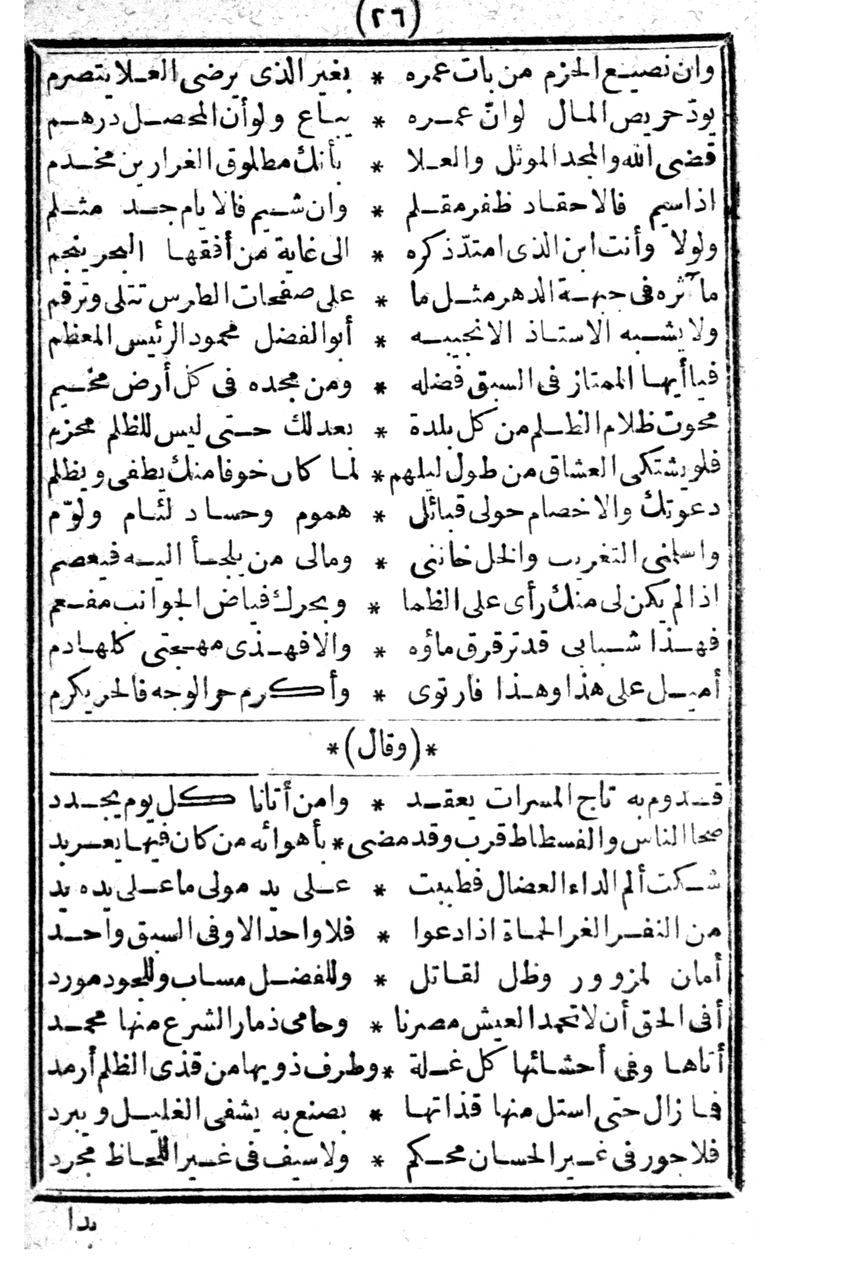 (٢٦)
وان نصيع الحزم من بات عمره * بغير الذى يرضى العلا يتصرم
يود حريص المال لوان عمره * يباع ولوأن المحصل درهم
قضى الله والمجد الموثل والعلا * بأنك مطلوق الغرارين مخدم
اذا سيم فالاحقاد ظفر مقلم * وان شيم فالايام حد مثلم
ولولا وأنت ابن الذى امتدّ ذكره * الى غاية من أفقها البحر ينجم
مآثره فى جبهة الدهر مثل ما * على صفحات الطرس تتلى وترقم
ولا يشبه الاستاذ الا نجيبه * أبو الفضل محمود الرئيس المعظم
فيا أيها الممتاز فى السبق فضله * ومن مجده فى كل أرض مخيم
محوت ظلام الظلم من كل بلدة * بعدلك حتى ليس للظلم محزم
فلو يشتكى العشاق من طول ليلهم * لما كان خوفا منك يطفى ويظلم
دعوتك والاخصام حولى قبائل * هموم وحساد لئام ولوّم
واسلمنى التغريب والخل خاننى * ومالى من يلجأ اليه فيعصم
اذا لم يكن لى منك رأى على الظما * وبحرك فياض الجوانب مفعم
فهذا شبابى قد ترقرق ماؤه * والا فهذى مهجتى كلها دم
أميل على هذا وهذا فارتوى * وأكرم حر الوجه فالحر يكرم
* (وقال) *
قدوم به تاج المسرات يعقد * وامن أتانا كل يوم يجدد
صحا الناس والفسطاط قرب وقد مضى * بأهوائه من كان فيها يعربد
شكت ألم الداء العضال فطببت * على يد مولى ما على يده يد
من النفر الغر الحماة اذا دعوا * فلا واحد الا وفى السبق واحد
أمان لمزوور وظل لقاتل * وللفضل مساب وللجود مورد
أفى الحق أن لا تحمد العيش مصرنا * وحامى ذمار الشرع منها محمد
أتاها وفى أحشائها كل غلة * وطرف ذويها من قذى الظلم أرمد
فما زال حتى استل منها قذاتها * بصنع به يشفى الغليل ويبرد
فلا جور فى غير الحسان محكم * ولا سيف فى غير اللحاظ مجرد
بدا